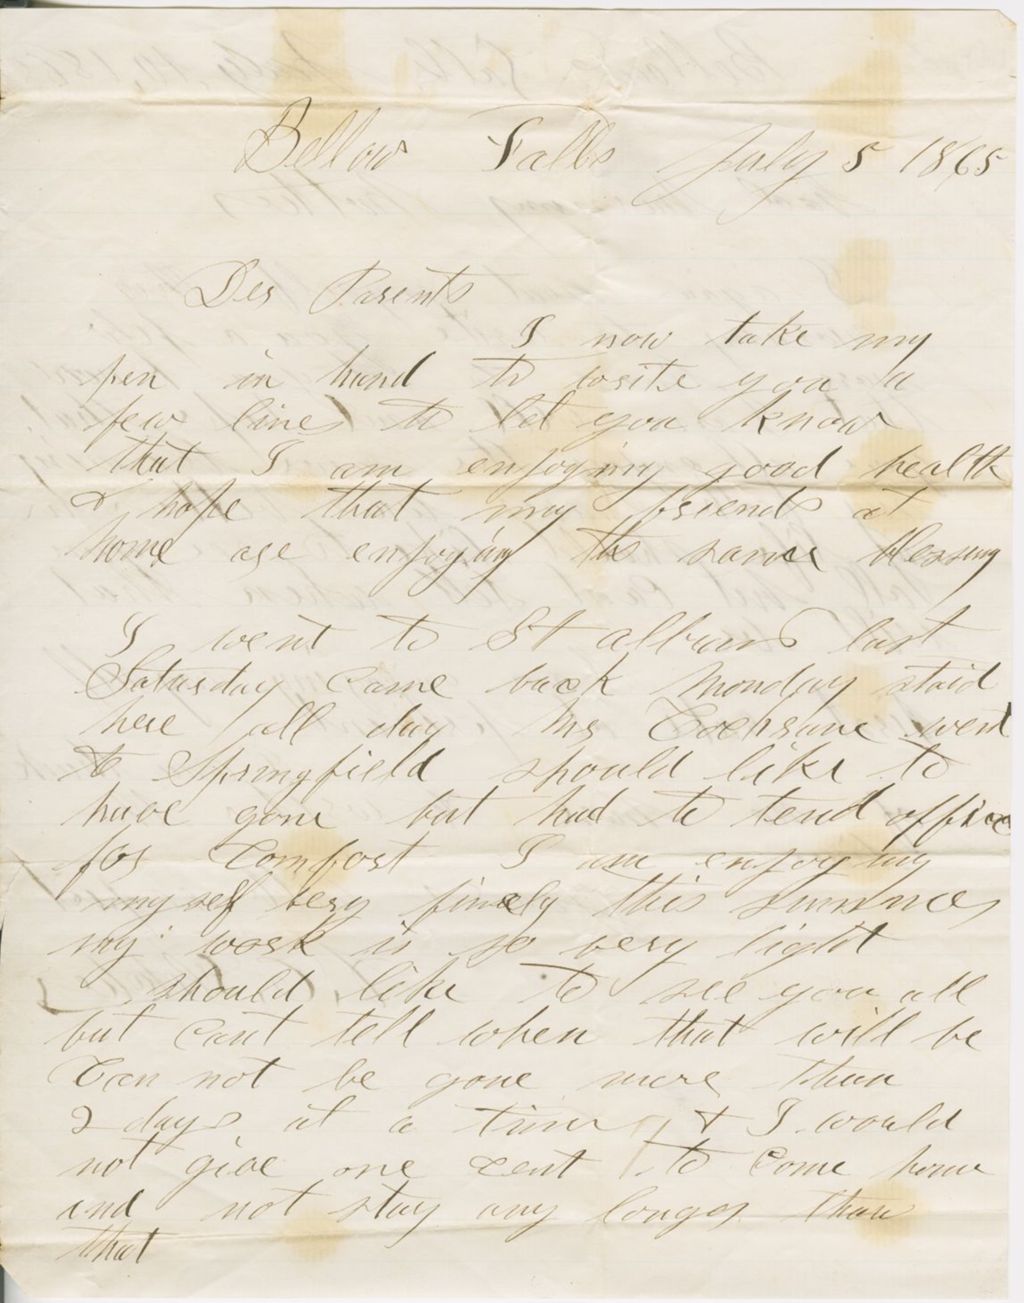 Bellows Falls July 5 1865
Der Parents
I now take my
pen in hand to write you a
few lines to let you know
that I am enjoying good health
& hope that my friends at
home are enjoying the same blessing
I went to St albans last
Saturday came back Monday staid
here all day Mr Cochrane went
to Springfield should like to
have gone but had to tend office
for Comfort I am enjoying
myself very finely this summer
my work is so very light
should like to see you all
but cant tell when that will be
Can not be gone more than
2 days at a time & I would
not give one cent to come home
and not stay any longer than
that